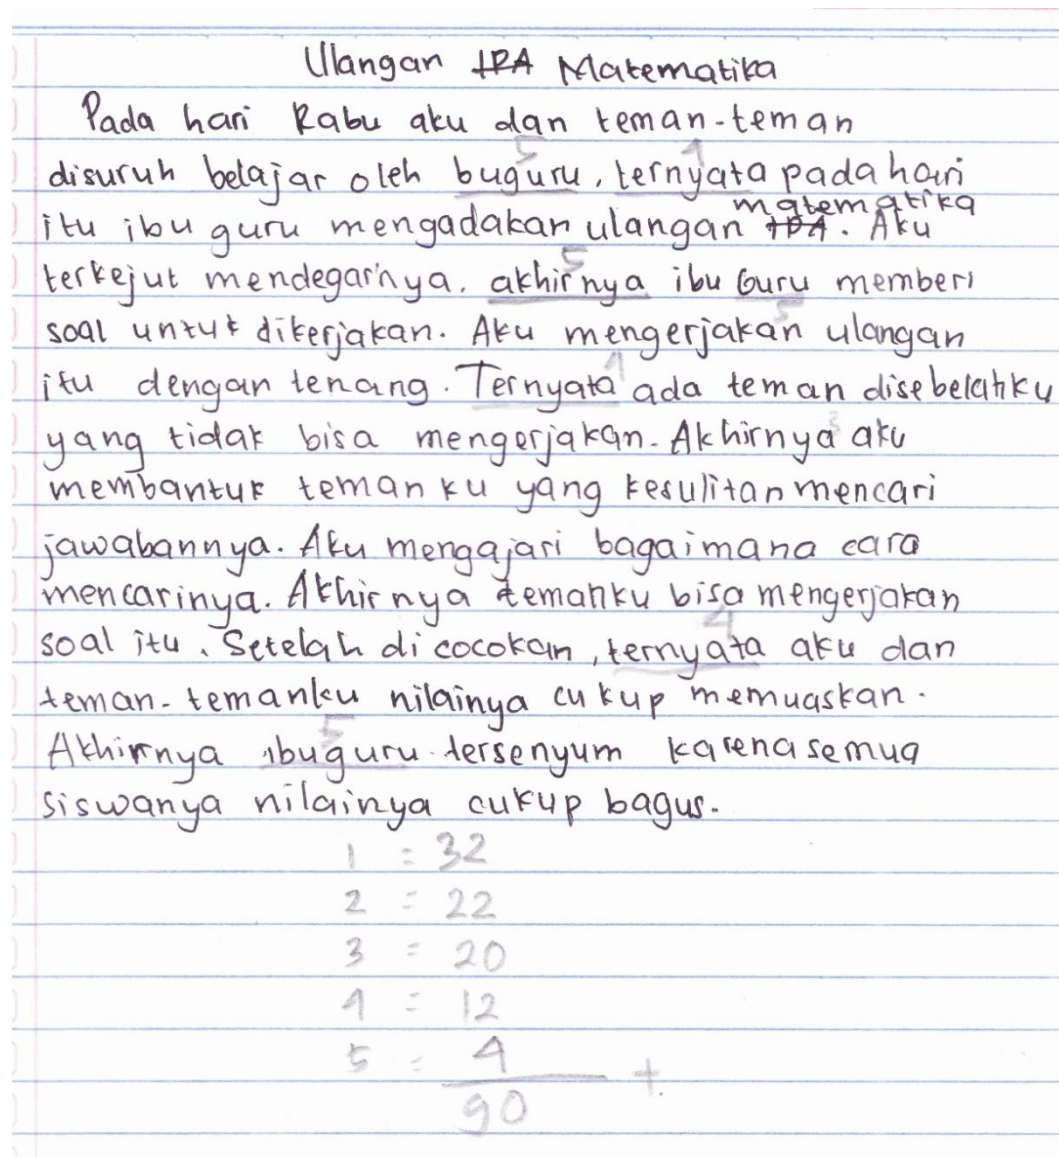 Ulangan IPA Matematika
Pada hari Rabu aku dan teman-teman
5 4
disuruh belajar oleh buguru, ternyata pada hari
matematika
itu ibu guru mengadakan ulangan IPA. Aku
5
terkejut mendegarnya. akhirnya ibu Guru memberi
5
soal untuk dikerjakan. Aku mengerjakan ulangan
4
itu dengan tenang. Ternyata ada teman disebelahku
3
yang tidak bisa mengerjakan. Akhirnya aku
membantuk teman ku yang kesulitan mencari
jawabannya. Aku mengajari bagaimana cara
mencarinya. Akhirnya temanku bisa mengerjakan
4
soal itu. Setelah di cocokan, ternyata aku dan
teman-temanku nilainya cukup memuaskan.
5
Akhirnya ibuguru tersenyum karena semua
siswanya nilainya cukup bagus.
1 = 32
2 = 22
3 = 20
4 = 12
5 = 4
+
90